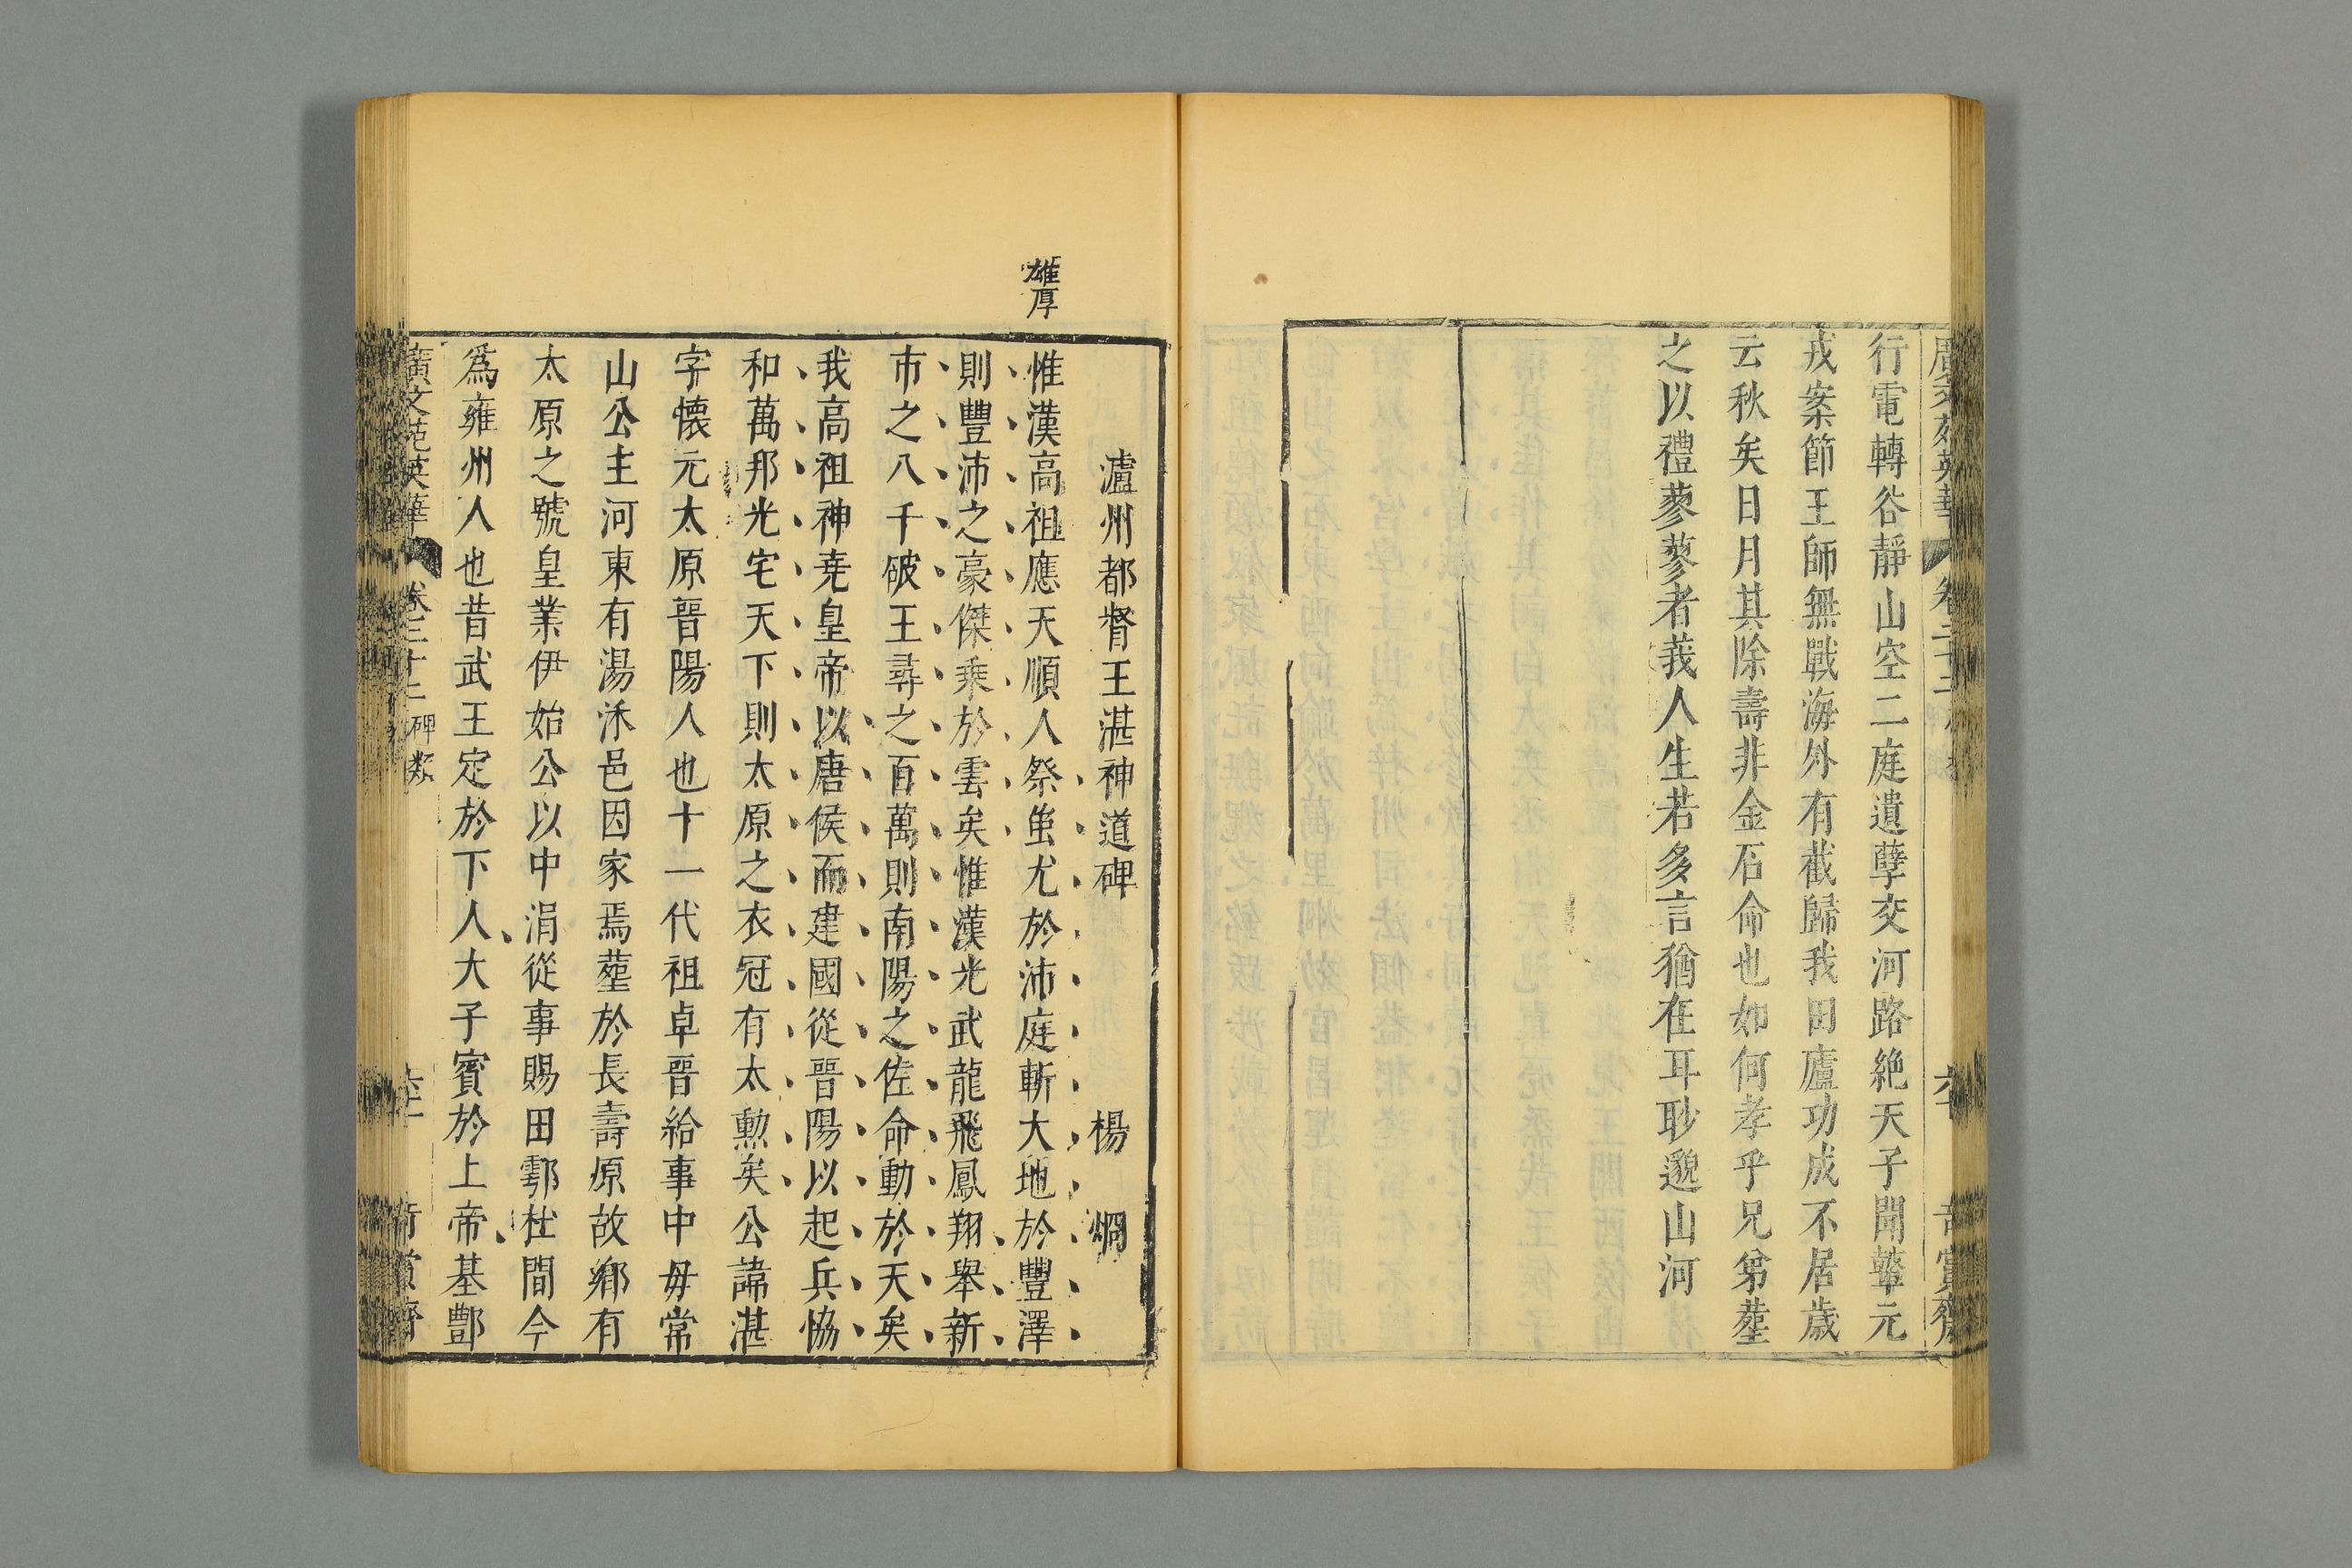 行電轉谷靜山空二庭遺孽交河路絶天子聞鼙元
戎案節王師無戰海外有截歸我田廬功成不居歲
云秋矣日月其除壽非金石命也如何孝乎兄弟塟
之以禮蓼蓼者莪人生若多言猶在耳眇邈山河
雄厚
瀘州都督王湛神道碑 楊烱
惟漢高祖應天順人祭蚩尤於沛庭斬大地於豐澤
則豐沛之豪傑乘於雲矣惟漢光武龍飛鳳翔舉新
市之八千破王尋之百萬則南陽之佐命動於天矣
我高祖神堯皇帝以唐侯而建國從晉陽以起兵恊
和萬邦光宅天下則太原之衣冠有太勲矣公諱湛
字懷元太原晉陽人也十一代祖卓晉給事中毋常
山公主河東有湯沐邑因家焉塟於長壽原故鄉有
太原之號皇業伊始公以中涓從事賜田鄠杜間今
爲雍州人也昔武王定於下人大子賓於上帝基酆
廣文苑英華 卷三十二 碑類